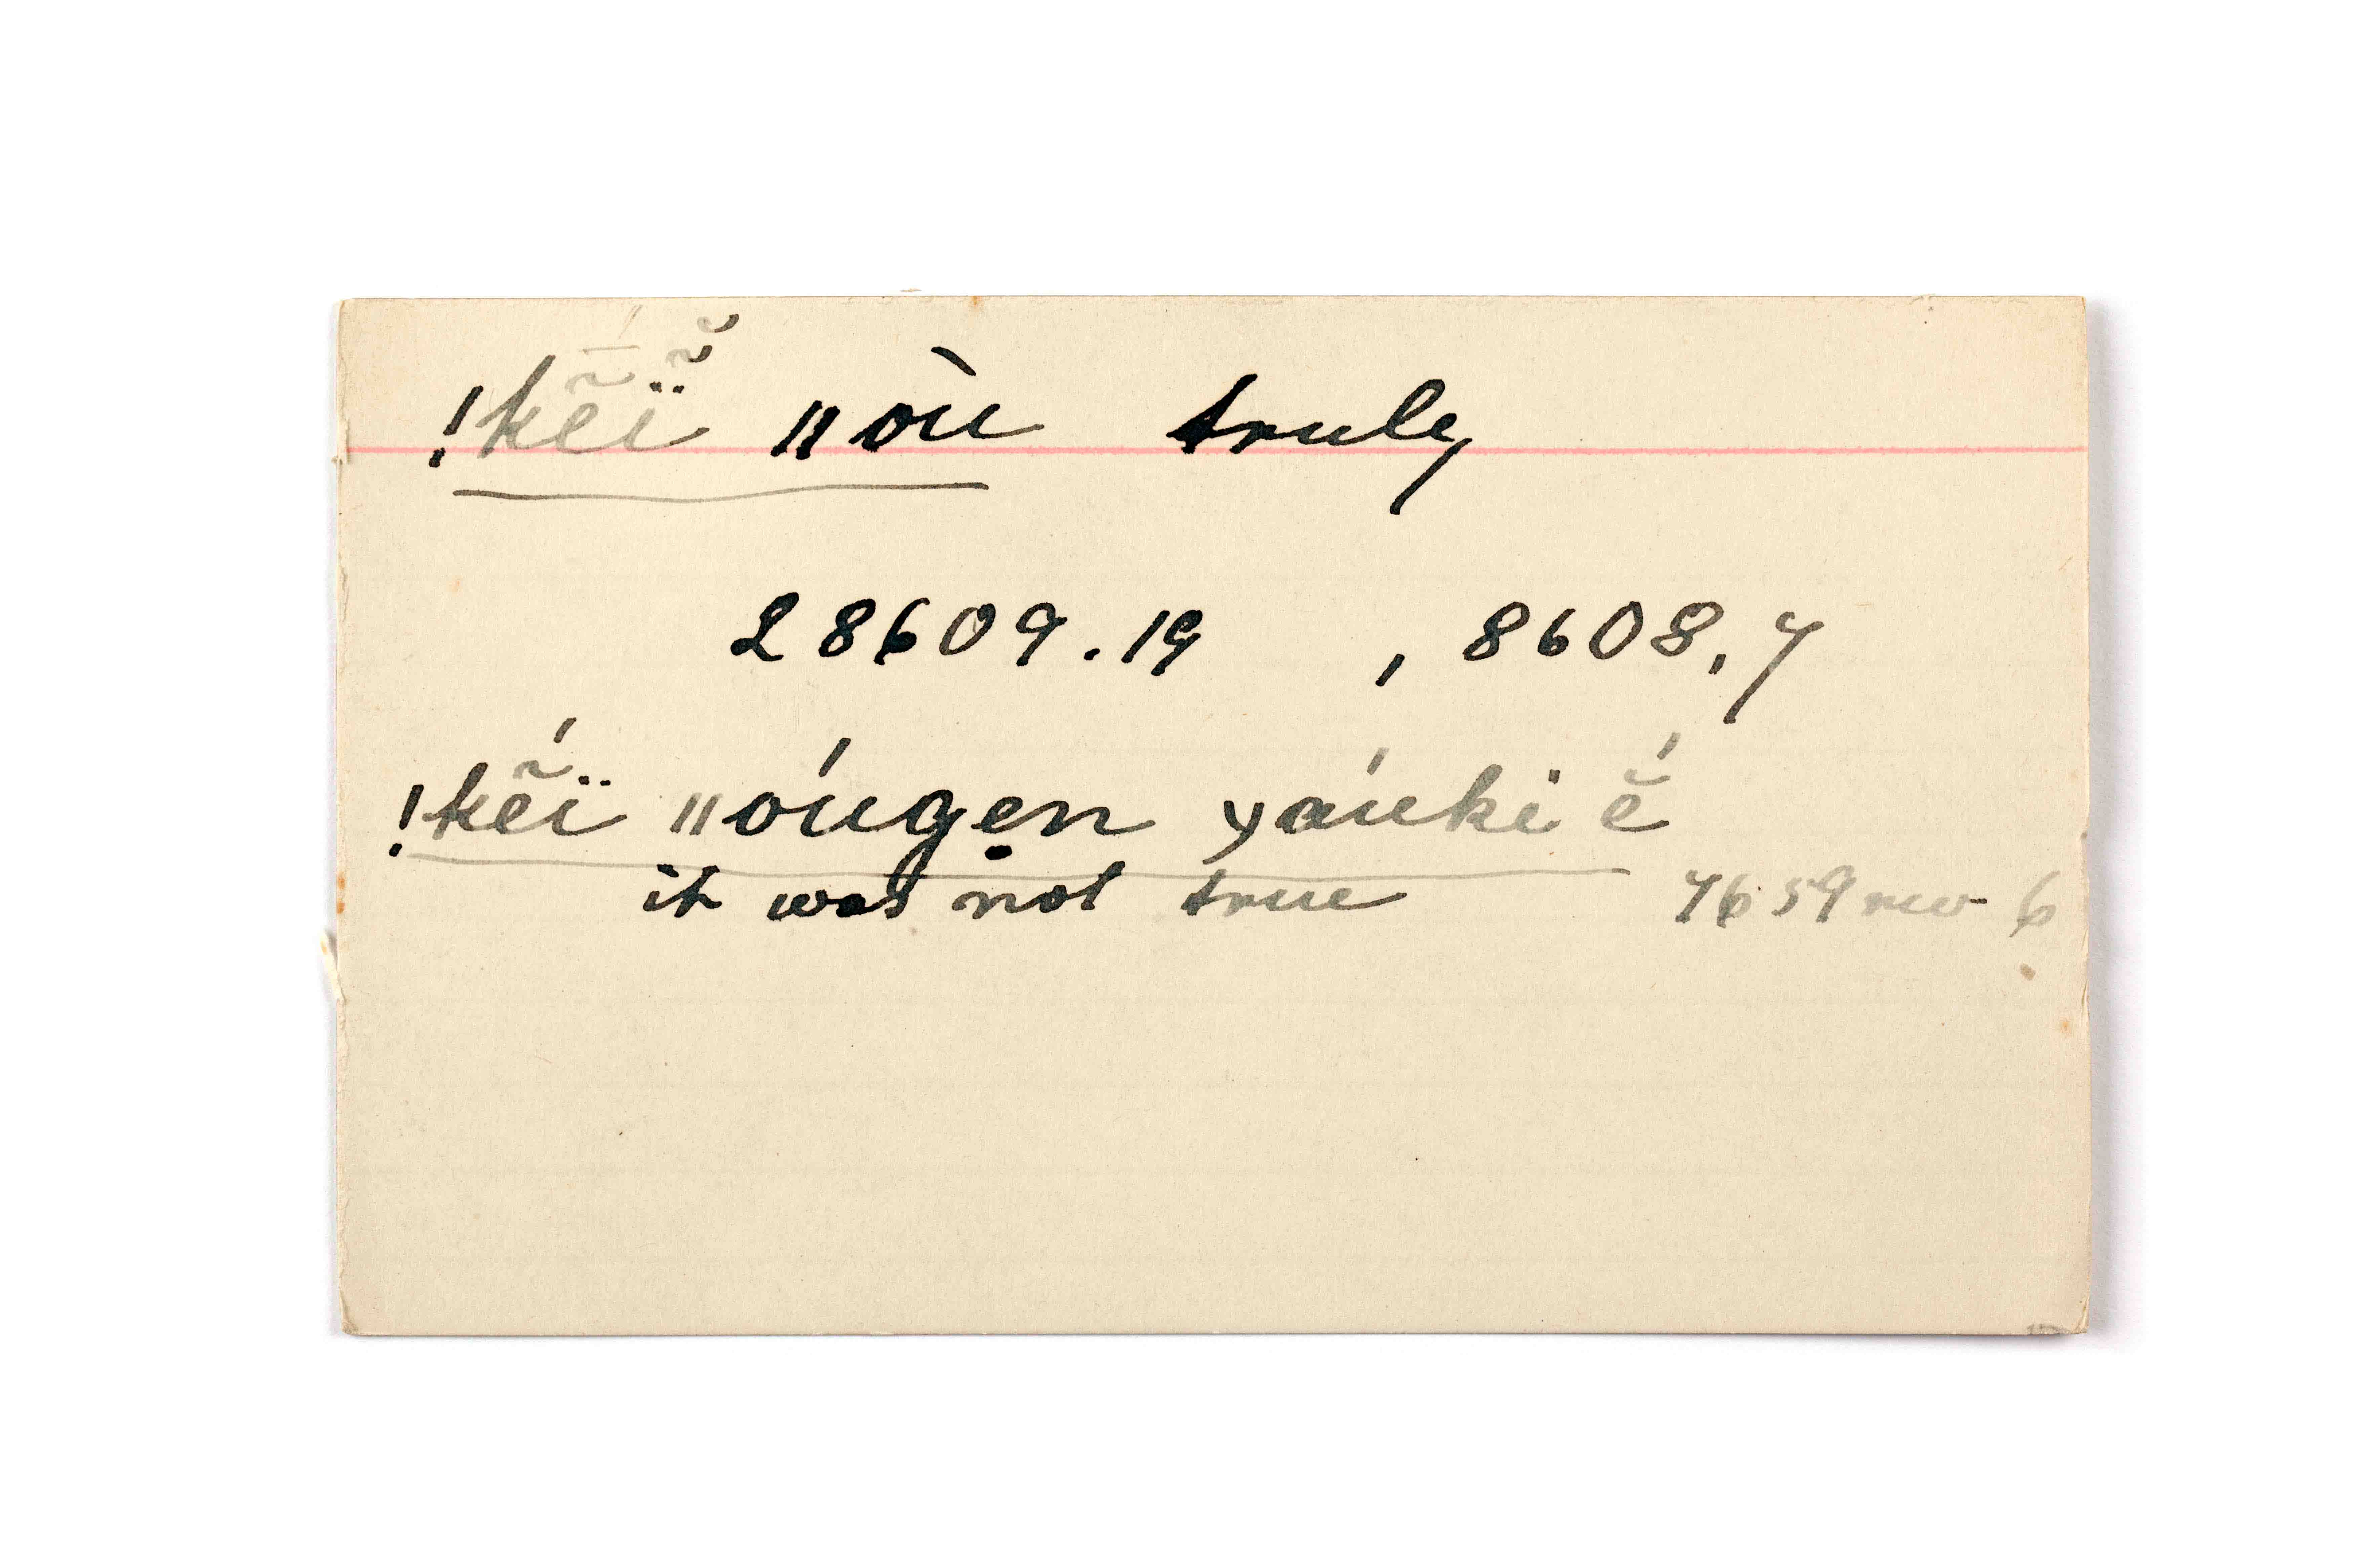 !kẽï ǁòu truly
L 8609.19 , 8608.7
!kẽ́ï ǁóugẹn χáuki ĕ́
it was not true 7659 rev 6